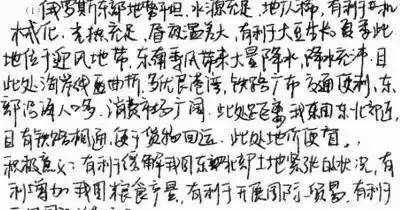 俄罗斯东部地势平坦,水源充足,地广人稀,有利于机
械化,光照充足,昼夜温差大,有利于大豆生长,夏季此
地位于迎风地带,东南季风带来大量降水,降水充沛,且
此处海岸线曲折,多优良港湾,铁路广布,交通便利,东
部沿海人口多,消费市场广阔,此处距离我国东北部近,
且有铁路相通,便于货物回运。此处地价便宜。
积极意义:有利于缓解我国东北部土地紧张的状况,有
利增加我国粮食产量,有利于开展国际贸易,有利于